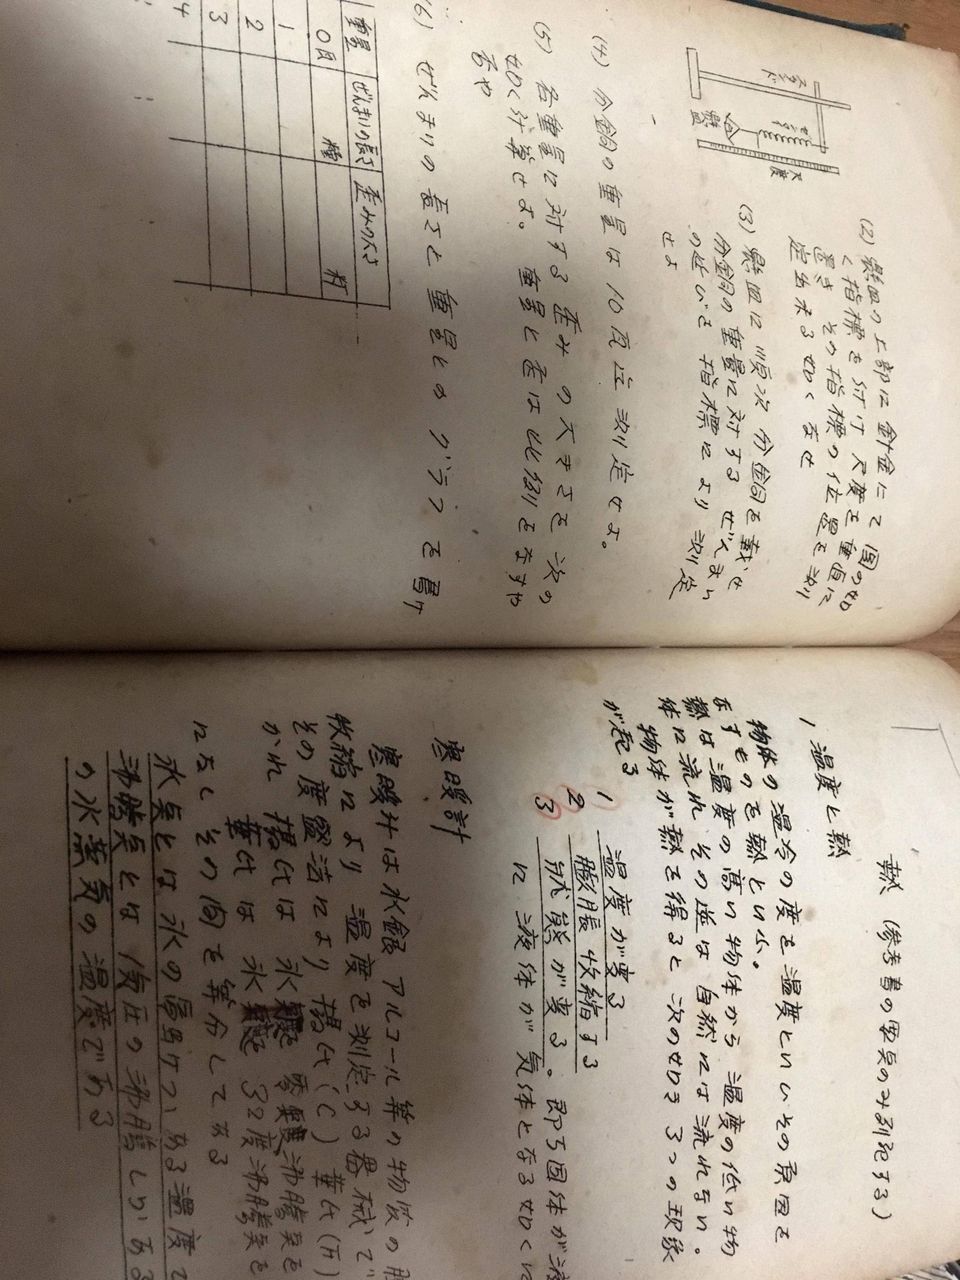 スタンド
ぜんまい
尺度
懸皿
(2) 懸皿の上部に針金にて図の如
く指標を附け尺度を垂直に
置きその指標の位置を測
定出来る如くなせ
(3) 懸皿に順次分銅を載せ
分銅の重量に対するぜんまい
の近びを指標により測定
せよ
(4) 分銅の重量は10瓦迄測定せよ。
(5) 各重量に対する歪みの大きさを次の
如く計算せよ。重量と歪は比例をなすや
否や
(6) ぜんまいの長さと重量とのグラフを書け
重量 ぜんまいの長さ 歪みの大きさ
0瓦 糎 粍
1
2
3
4
熱 (参考書の要点のみ列記する)
1 温度と熱
物体の温冷の度を温度といいその原因を
なすものを熱といふ。
熱は温度の高い物体から温度の低い物
体に流れその逆は自然には流れない。
物体が熱を得ると次の如き3つの現象
が起る
1 温度が変る
2 膨脹收縮する
3 状態が変る。即ち固体が液
に液体が気体となる如くに
寒暖計
寒暖計は水銀アルコール等の物質の膨
收縮により温度を測定する器械で
その度盛法により摂氏(C)華氏(F)
かれ 摂氏は氷点零度沸騰点を
華氏は氷点32度沸騰点を
になしその間を等分してある
氷点とは氷の融けつゝある温度で
沸騰点とは1気圧の沸騰しつゝある
の水蒸気の温度である